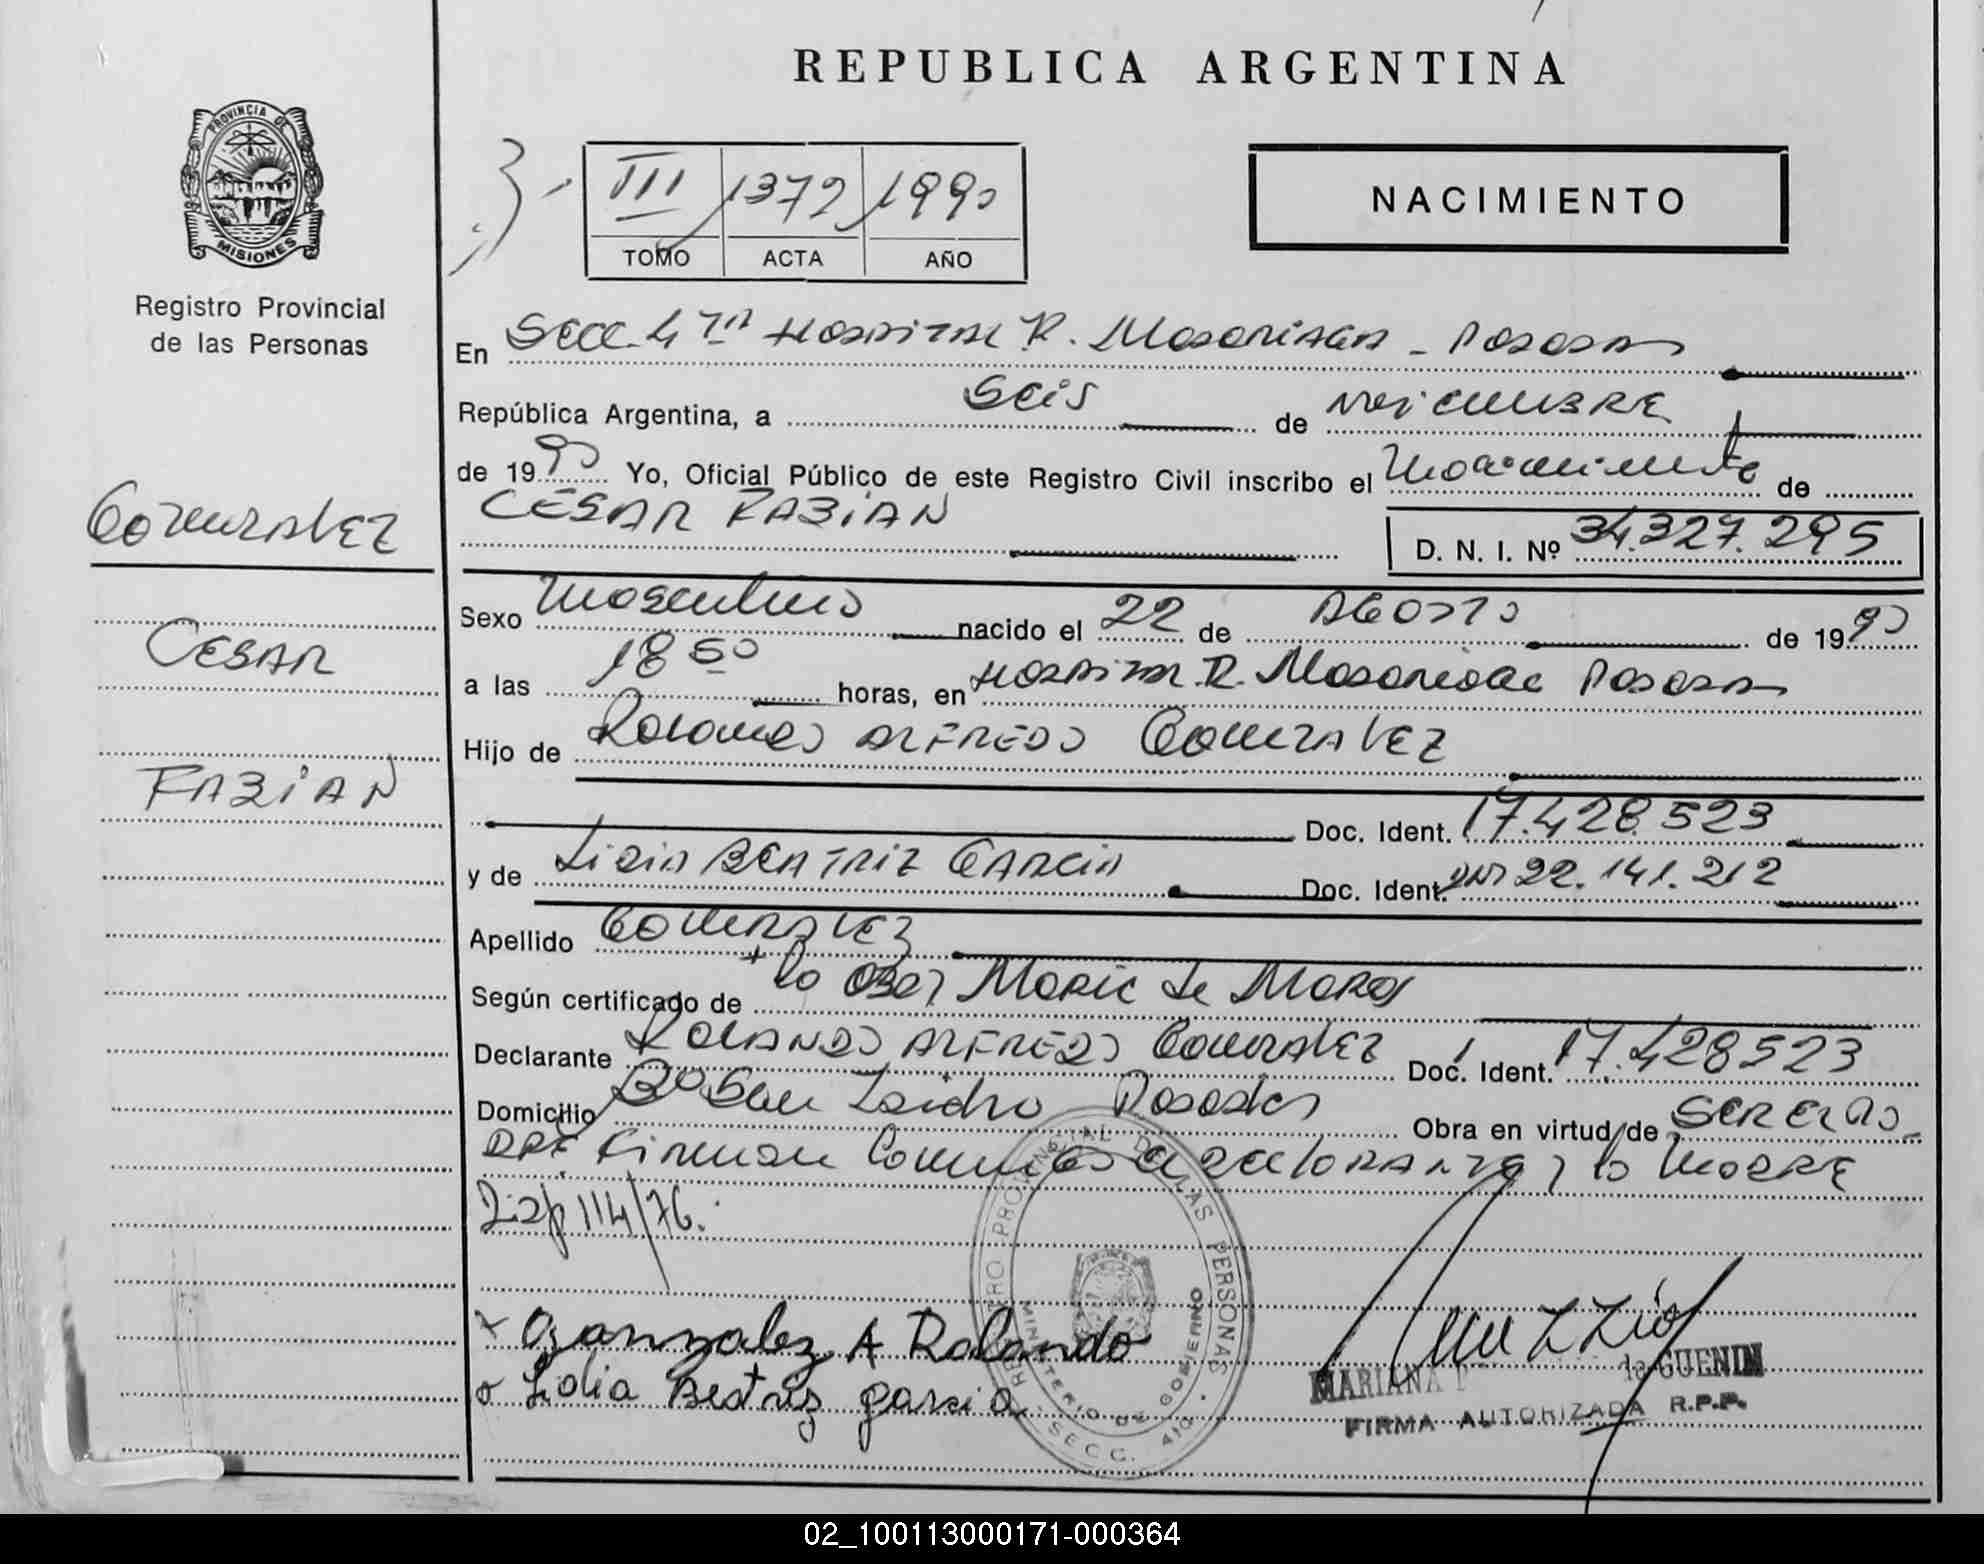 REPUBLICA ARGENTINA
PROVINCIA DE
MISIONES
Registro Provincial
de las Personas
III 1372 1990
TOMO ACTA AÑO
NACIMIENTO
En Secc. 4ta Hospital R. Madariaga - Posadas
República Argentina, a Seis de Diciembre
de 1990 Yo, Oficial Público de este Registro Civil inscribo el Nacimiento de
CESAR FABIAN
D. N. I. Nº 34.327.295
Gonzalez
CESAR
FABIAN
Sexo Masculino nacido el 22 de AGOSTO de 1990
a las 18 50 horas, en Hospital R. Madariaga Posadas
Hijo de Rolando ALFREDO GONZALEZ
Doc. Ident. 17.428.523
y de Lidia BEATRIZ GARCIA Doc. Ident. DNI 22.141.212
Apellido GONZALEZ
Según certificado de la Obst Marie de
Declarante ROLANDO ALFREDO GONZALEZ Doc. Ident. 17.428523
Domicilio Bº San Isidro Posadas Obra en virtud de
Firman Conmigo el declarante y la Madre
Disp 114/76.
x Gonzalez A Rolando
Lidia Beatriz garcia
REGISTRO PROVINCIAL DE LAS PERSONAS
MINISTERIO DE GOBIERNO
SECC. 4TO.
MARIANA GUENIN
FIRMA AUTORIZADA R.P.P.
02_100113000171-000364